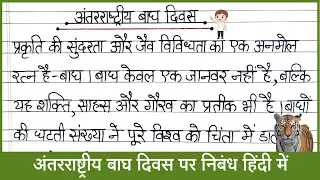 अंतरराष्ट्रीय बाघ दिवस
प्रकृति की सुंदरता और जैव विविधता का एक अनमोल
रत्न है-बाघ। बाघ केवल एक जानवर नहीं है, बल्कि
यह शक्ति, साहस और गौरव का प्रतीक भी है। बाघों
की घटती संख्या ने पूरे विश्व को चिंता में डाल
अंतरराष्ट्रीय बाघ दिवस पर निबंध हिंदी में